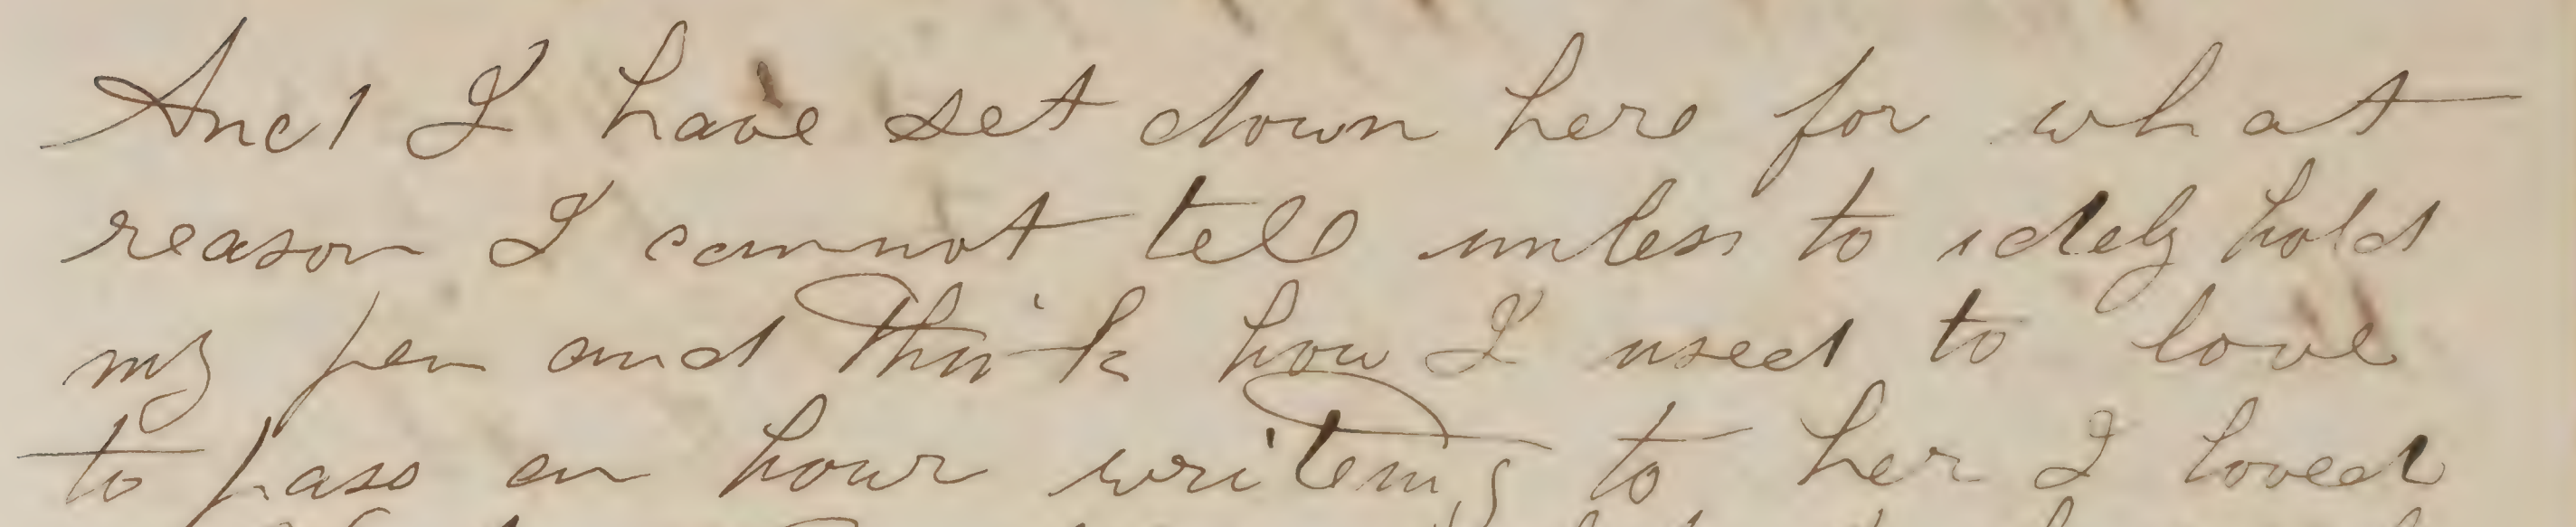 And I have set down here for what
reason I cannot tell unless to idely hold
my pen and think how I used to love
to pass an hour writeing to her I loved